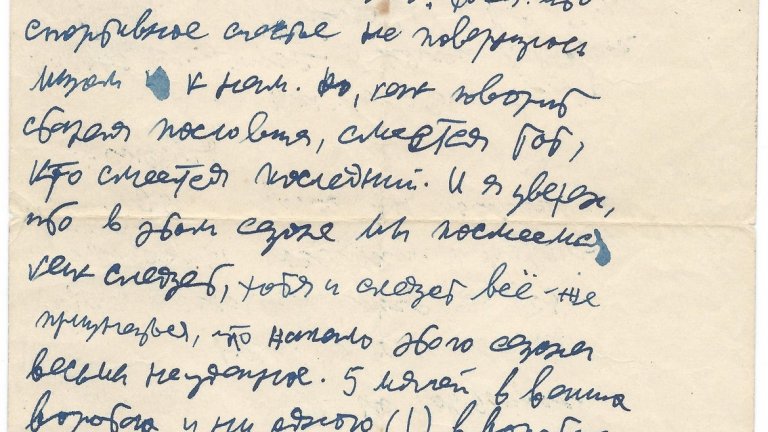 что
спортивное счастье не повернулось
лицом к нам. Но, как говорит
старая пословица, смеётся тот,
кто смеётся последний. И я уверен,
что в этом сезоне мы посмеемся
как следует, хотя и следует всё-же
признаться, что начало этого сезона
весьма неудачное. 5 мячей в ваши
ворота и ни одного (!) в ворота